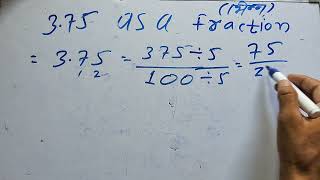 (भिन्न)
3.75 as a fraction
= 3.75 = 375÷5 / 100÷5 = 75 / 2
1 2